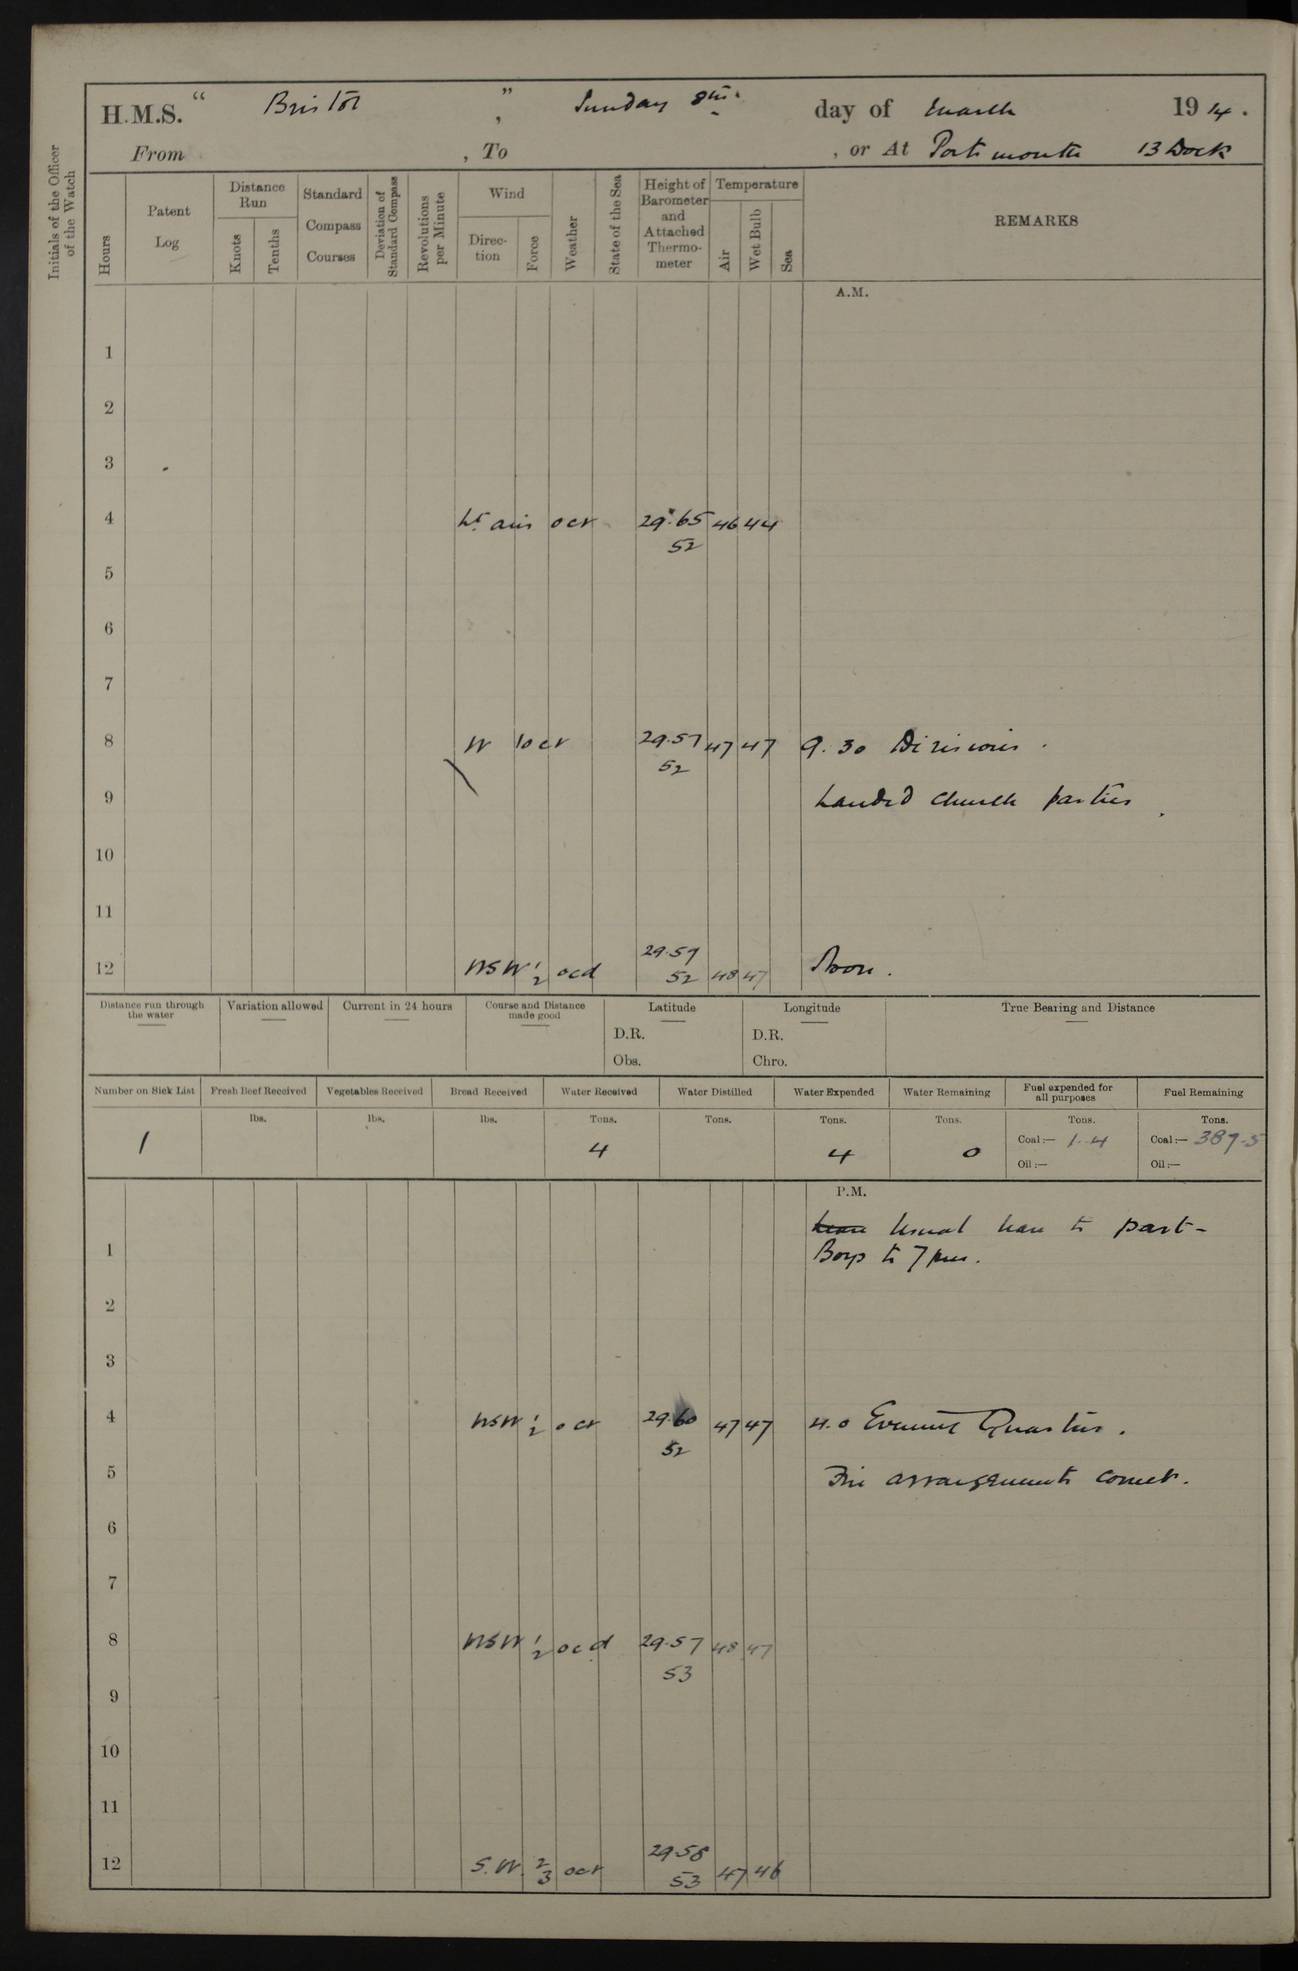 H.M.S. " Bristol ", Sunday 8th. day of March 1914.
From , To , or At Portsmouth 13 Dock
Initials of the Officer of the Watch
Hours
Patent Log
Distance Run
Knots
Tenths
Standard Compass Courses
Deviation of Standard Compass
Revolutions per Minute
Wind
Direction
Force
Weather
State of the Sea
Height of Barometer and Attached Thermometer
Temperature
Air
Wet Bulb
Sea
REMARKS
A.M.
1
2
3
4 Lt airs ocr 29.65 46 44
52
5
6
7
8 W 1 ocr 29.57 47 47 9.30 Divisions.
52
9 Landed Church parties.
10
11
29.59
12 WSW 1/2 ocd 52 48 47 Noon.
Distance run through the water
Variation allowed
Current in 24 hours
Course and Distance made good
Latitude
D.R.
Obs.
Longitude
D.R.
Chro.
True Bearing and Distance
Number on Sick List Fresh Beef Received Vegetables Received Bread Received Water Received Water Distilled Water Expended Water Remaining Fuel expended for all purposes Fuel Remaining
lbs. lbs. lbs. Tons. Tons. Tons. Tons. Tons. Tons.
1 4 4 0 Coal:— 1.4 Coal:— 387.5
Oil:— Oil:—
P.M.
Usual leave to part-
1 Boys to 7 pm.
2
3
4 WSW 1/2 ocr 29.60 47 47 4.0 Evening Quarters.
52
5 Fire arrangements correct.
6
7
8 WSW 1/2 ocd 29.57 48 47
53
9
10
11
29.58
12 S.W. 2/3 ocr 53 47 46